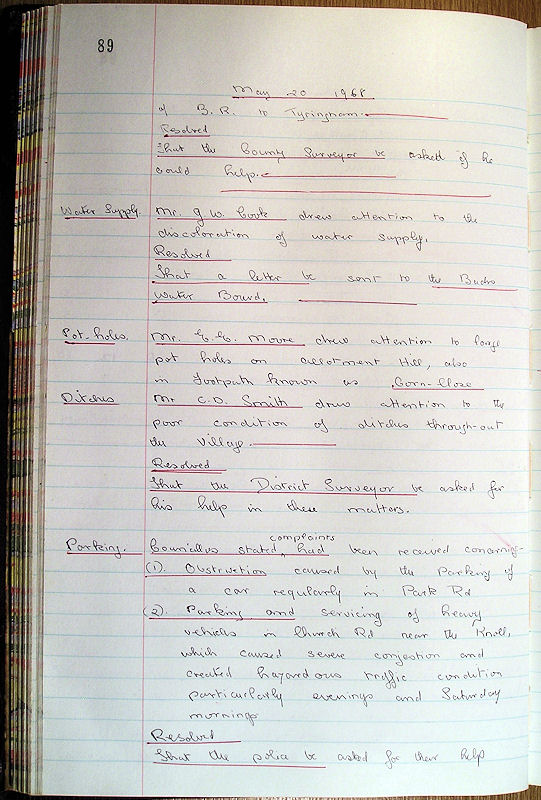 89
May 20 1968
of B.R. to Tyringham.
Resolved
That the County Surveyor be asked if he
could help.
Water Supply. Mr. G. W. Cook drew attention to the
discoloration of water supply.
Resolved
That a letter be sent to the Bucks
Water Board.
Pot-holes. Mr. E. E. Moore drew attention to large
pot holes on allotment Hill, also
in footpath known as Corn-Close
Ditches Mr C. D. Smith drew attention to the
poor condition of ditches through-out
the village.
Resolved
That the District Surveyor be asked for
his help in these matters.
complaints
Parking. Councillors stated, had been received concerning-
(1). Obstruction caused by the Parking of
a car regularly in Park Rd
(2). Parking and servicing of heavy
vehicles in Church Rd near the Knoll,
which caused severe congestion and
created hazardous traffic condition
particularly evenings and Saturday
mornings
Resolved
That the police be asked for their help